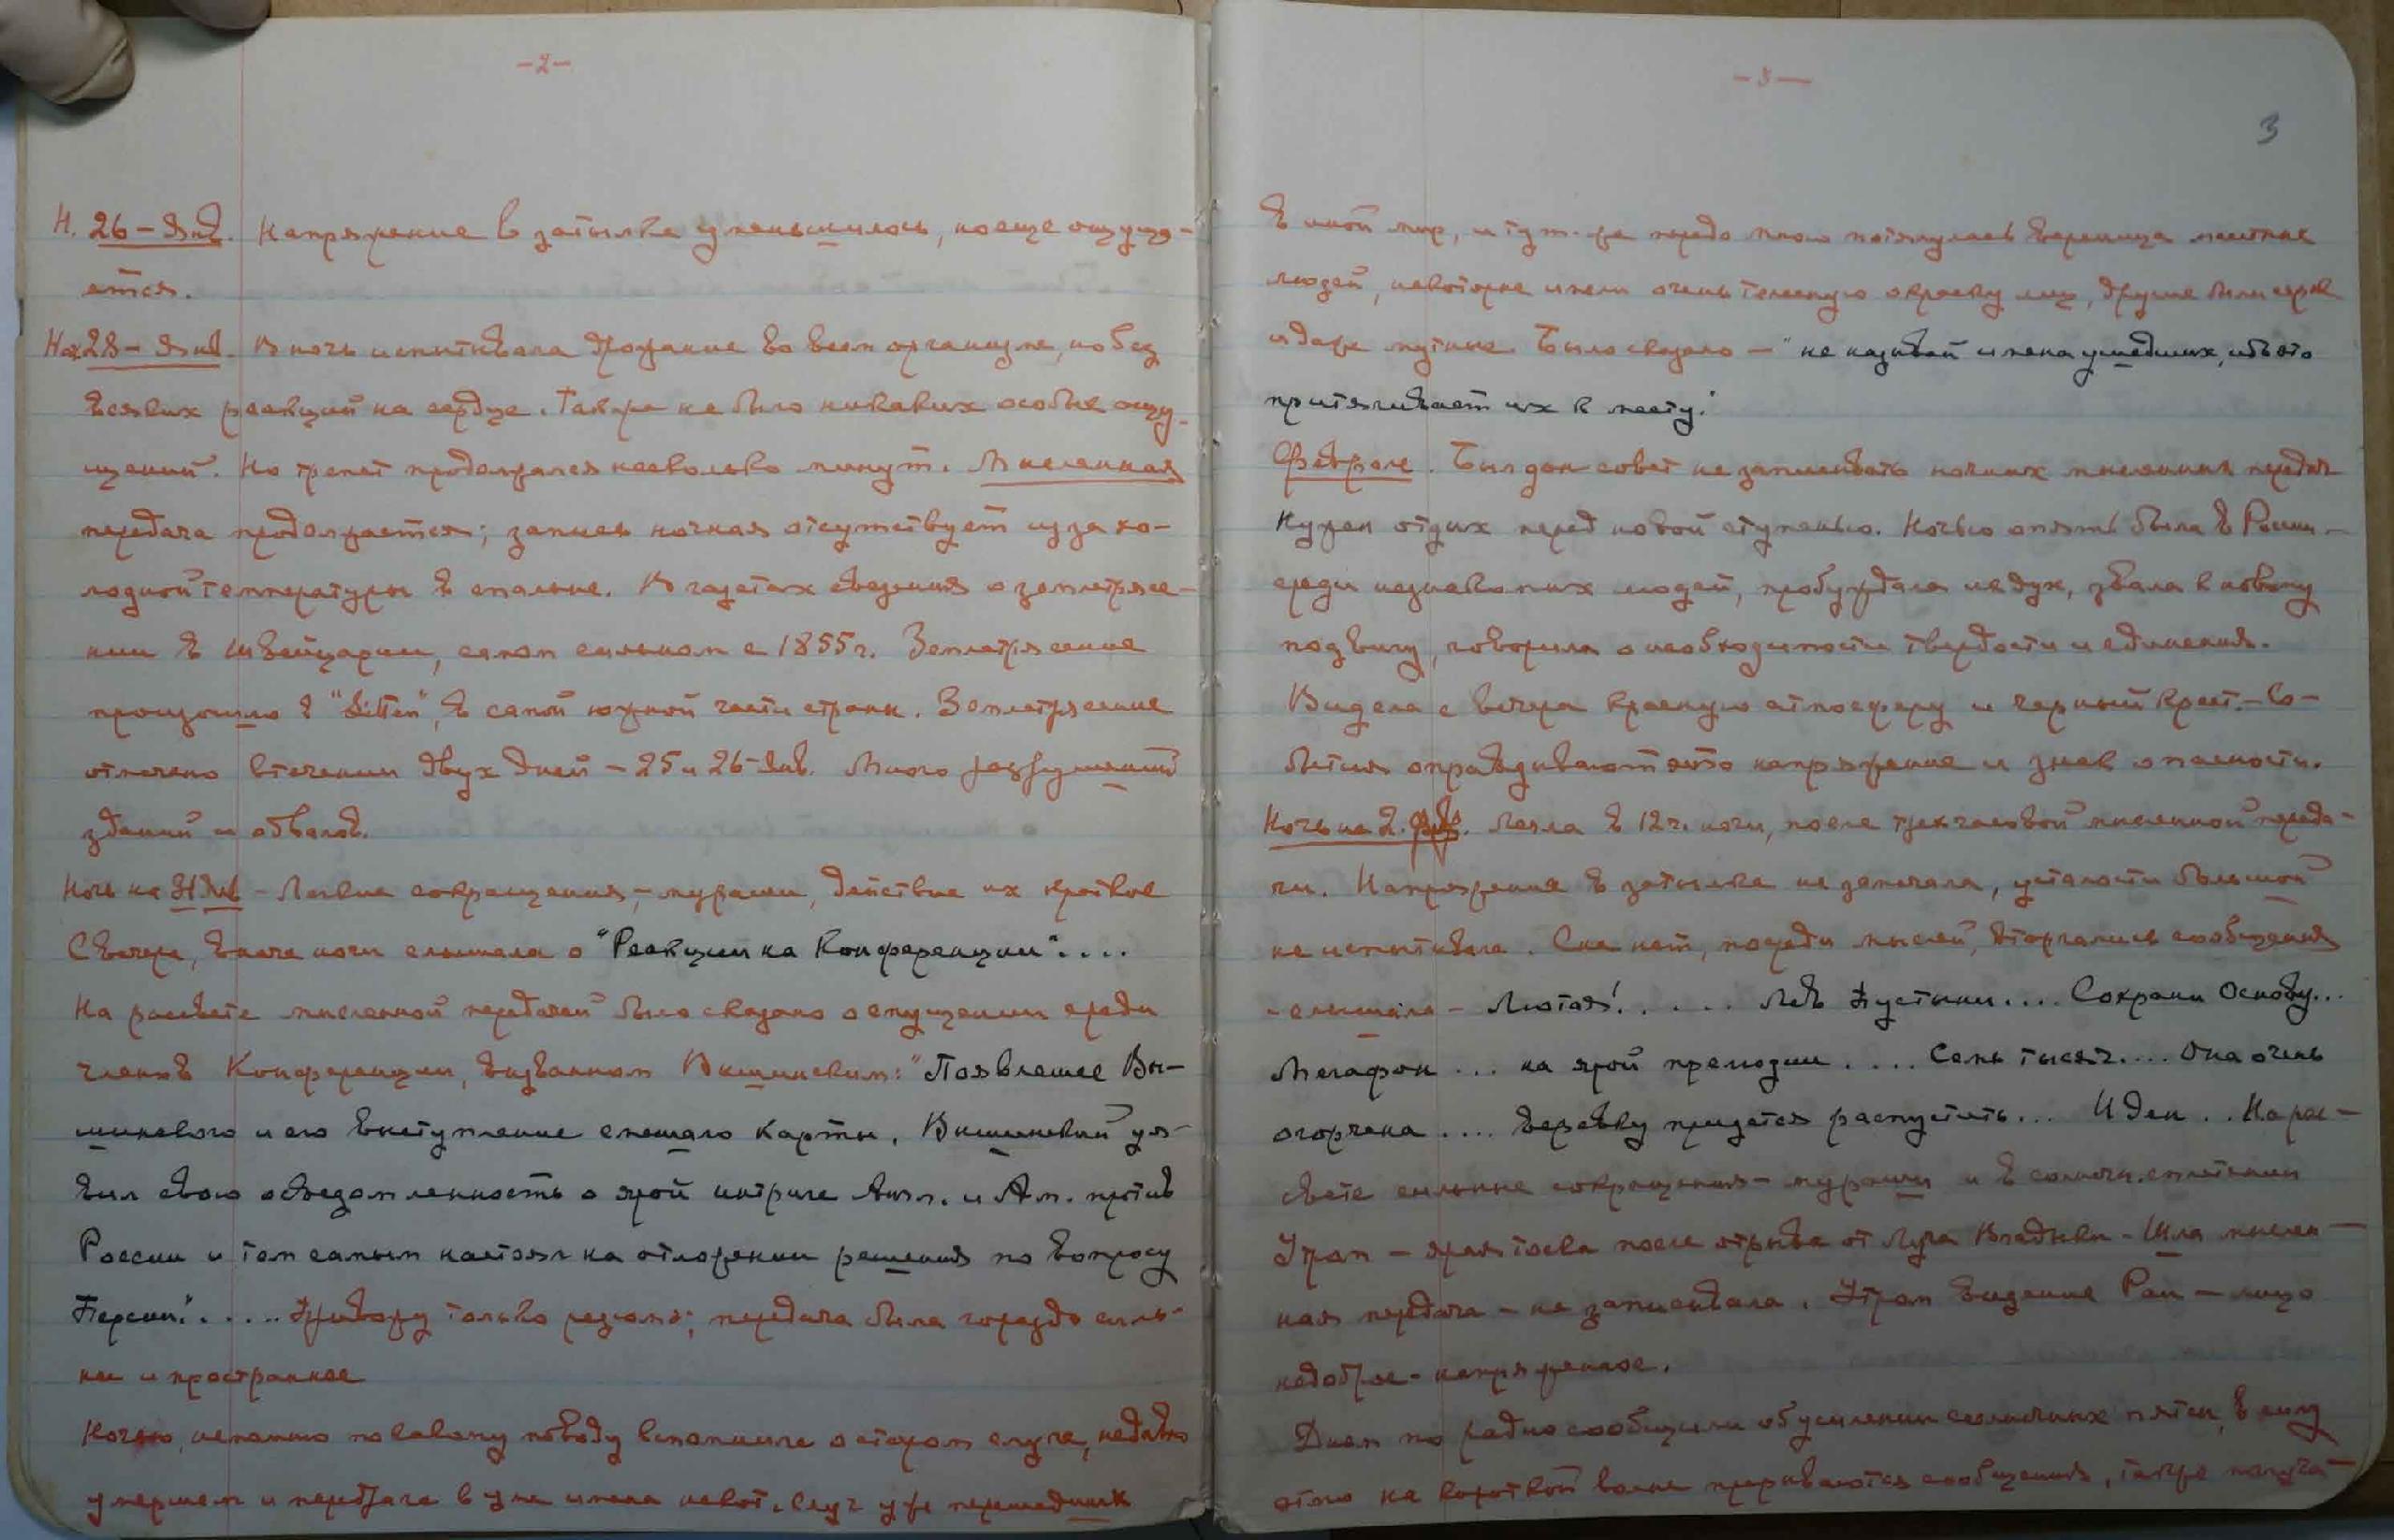 -2-
Н. 26 – Янв. Напряжение в затылке уменьшилось, но еще ощуща-
ется.
На 28 – Янв. В ночь испытывала дрожание во всем организме, но без
всяких реакций на сердце. Также не было никаких особых ощу-
щений. Но трепет продолжался несколько минут. Мысленная
передача продолжается; запись ночная отсутствует из за хо-
лодной температуры в спальне. В газетах сведения о землетрясе-
нии в Швейцарии, самом сильном с 1855 г. Землетрясение
произошло в "Sitten", в самой южной части страны. Землетрясение
отмечено втечении двух дней – 25 и 26-Янв. Много разрушений
зданий и обвалов.
Ночь на 31 Янв – Легкие сокращения, – мураши, действие их краткое
С вечера, вначе ночи слышала о "Реакции на Конференции"....
На рассвете мысленной передачей было сказано о смущении среди
членов Конференции, вызванном Вышинским: "Появление Вы-
шинского и его выступление смешало карты. Вышинский уя-
вил свою осведомленность о ярой интриге Англ. и Ам. против
России и тем самым настоял на отложении решения по вопросу
Персии"..... Привожу только резюмэ; передача была гораздо силь-
нее и пространнее
Ночью, непомню по какому поводу вспомнила о старом слуге, недавно
умершем и передrase в уме имена некот. слуг уже перешедших
-3-
3
в иной мир, и тут-же передо мною потянулась вереница местных
людей, некоторые имели очень телесную окраску лиц, другие были серые
и даже мутные. Было сказано – "не называй имена ушедших, ибо это
притягивает их к месту."
Февраль. Был дан совет не записывать ночных мысленных передач
Нужен отдых перед новой ступенью. Ночью опять была в России –
среди незнакомых людей, пробуждала их дух, звала к новому
подвигу, говорила о необходимости твердости и единения.
Видела с вечера красную атмосферу и черный крест. – Со-
бытия оправдывают это напряжение и знак опасности.
Ночь на 2. Фев. Легла в 12 ч. ночи, после трехчасовой мысленной переда-
чи. Напряжения в затылке не замечала, усталости большой
не испытывала. Сна нет, посреди мыслей, вторгались сообщения
- слышала – Лютая!...... Лев Пустыни.... Сохрани Основу...
Мегафон ... на ярой прелюдии .... Семь тысяч.... Она очень
огорчена .... Веревку придется распустить... Иден .. На рас-
свете сильные сокращения – мураши и в солнечн. сплетении
Утром – ярая тоска после отрыва от Луча Владыки – Шла мыслен-
ная передача – не записывала. Утром видение Раи – лицо
недоброе – напряженное.
Днем по радио сообщили об усилении солнечных пятен, в силу
этого на короткой волне прерываются сообщения, также получа-